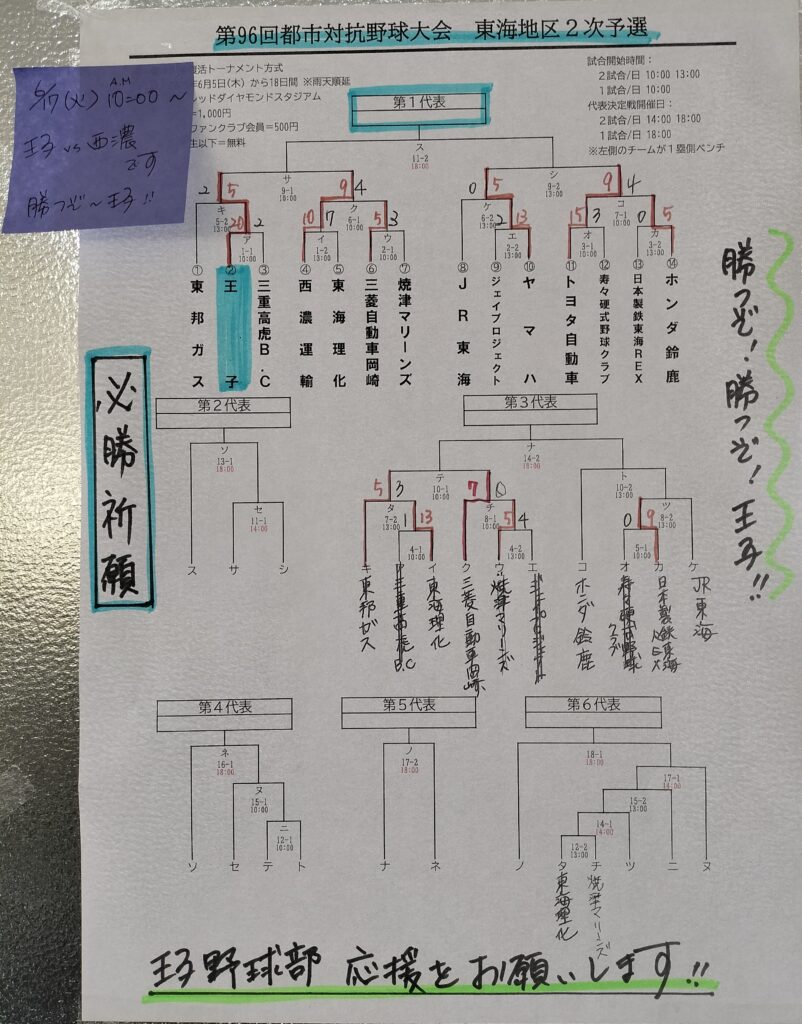 第96回都市対抗野球大会　東海地区２次予選
活トーナメント方式
年6月5日(木）から18日間 ※雨天順延
レッドダイヤモンドスタジアム
=1,000円
ファンクラブ会員=500円
生以下=無料
試合開始時間：
２試合/日 10:00 13:00
１試合/日 10:00
代表決定戦開催日：
２試合/日 14:00 18:00
１試合/日 18:00
※左側のチームが１塁側ベンチ
(火) A.M 10=00～
王子 vs 西濃
です
勝つぞ～王子!!
第１代表
ス
11-2
18:00
サ
9-1
18:00
シ
9-2
13:00
2 5 9 4 0 5 9 4
キ
5-2
13:00
ク
6-1
10:00
ケ
6-2
13:00
コ
7-1
10:00
20 2 10 7 5 3 2 13 15 3 0 5
ア
1-1
10:00
イ
1-2
13:00
ウ
2-1
10:00
エ
2-2
13:00
オ
3-1
10:00
カ
3-2
13:00
①東邦ガス
②王子
③三重高虎Ｂ．Ｃ
④西濃運輸
⑤東海理化
⑥三菱自動車岡崎
⑦焼津マリーンズ
⑧ＪＲ東海
⑨ジェイプロジェクト
⑩ヤマハ
⑪トヨタ自動車
⑫寿々硬式野球クラブ
⑬日本製鉄東海REX
⑭ホンダ鈴鹿
必勝祈願
勝つぞ！勝つぞ！王子!!
第２代表
ソ
13-1
18:00
セ
11-1
14:00
ス サ シ
第３代表
ナ
14-2
18:00
テ
10-1
10:00
ト
10-2
13:00
5 3 7 0
タ
7-2
13:00
チ
8-1
10:00
ツ
8-2
13:00
1 13 5 4 0 9
4-1
10:00
4-2
13:00
5-1
10:00
キ ア イ ク ウ エ コ オ カ ケ
東邦ガス
三重高虎B.C
東海理化
三菱自動車岡崎
焼津マリーンズ
ジェイプロジェクト
ホンダ鈴鹿
寿々硬式野球クラブ
日本製鉄東海REX
JR東海
第４代表
ネ
16-1
18:00
ヌ
15-1
10:00
ニ
12-1
10:00
ソ セ テ ト
第５代表
ノ
17-2
18:00
ナ ネ
第６代表
18-1
18:00
17-1
14:00
15-2
13:00
14-1
14:00
12-2
13:00
ノ タ チ ツ ニ ヌ
東海理化
焼津マリーンズ
王子野球部 応援をお願いします!!